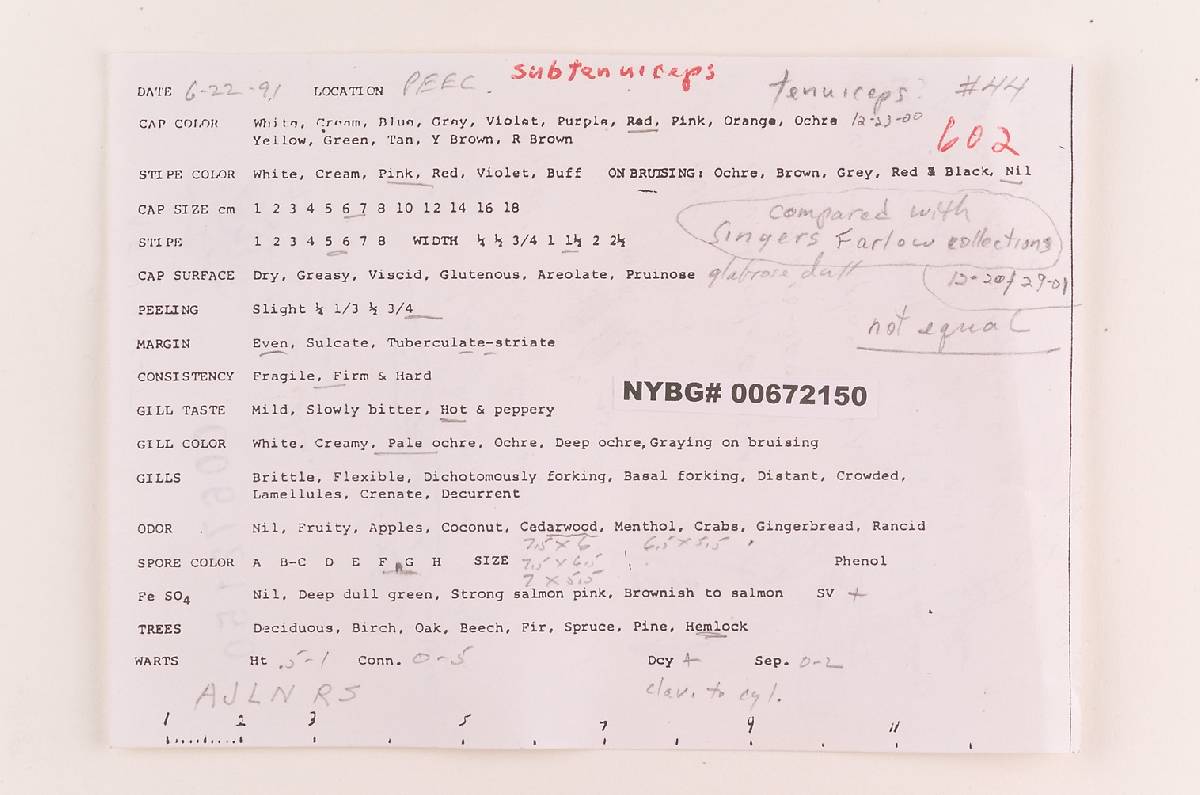 subtenuiceps
DATE 6-22-91 LOCATION PEEC. tenuiceps? #44
CAP COLOR White, Cream, Blue, Grey, Violet, Purple, Red, Pink, Orange, Ochre 12-23-00
Yellow, Green, Tan, Y Brown, R Brown 602
STIPE COLOR White, Cream, Pink, Red, Violet, Buff ON BRUISING: Ochre, Brown, Grey, Red & Black, Nil
CAP SIZE cm 1 2 3 4 5 6 7 8 10 12 14 16 18 compared with
STIPE 1 2 3 4 5 6 7 8 WIDTH ¼ ½ 3/4 1 1½ 2 2½ Singers Farlow collections
CAP SURFACE Dry, Greasy, Viscid, Glutenous, Areolate, Pruinose glabrose dull
12-20/29-01
PEELING Slight ¼ 1/3 ½ 3/4
not equal
MARGIN Even, Sulcate, Tuberculate-striate
CONSISTENCY Fragile, Firm & Hard
NYBG# 00672150
GILL TASTE Mild, Slowly bitter, Hot & peppery
GILL COLOR White, Creamy, Pale ochre, Ochre, Deep ochre, Graying on bruising
GILLS Brittle, Flexible, Dichotomously forking, Basal forking, Distant, Crowded,
Lamellules, Crenate, Decurrent
ODOR Nil, Fruity, Apples, Coconut, Cedarwood, Menthol, Crabs, Gingerbread, Rancid
7.5 x 6 6.5 x 5.5
SPORE COLOR A B-C D E F G H SIZE 7.5 x 6.5 Phenol
7 x 5.5
Fe SO4 Nil, Deep dull green, Strong salmon pink, Brownish to salmon SV +
TREES Deciduous, Birch, Oak, Beech, Fir, Spruce, Pine, Hemlock
WARTS Ht .5-1 Conn. 0-5 Dcy + Sep. 0-2
AJLN RS clav. to cyl.
1 2 3 5 7 9 11